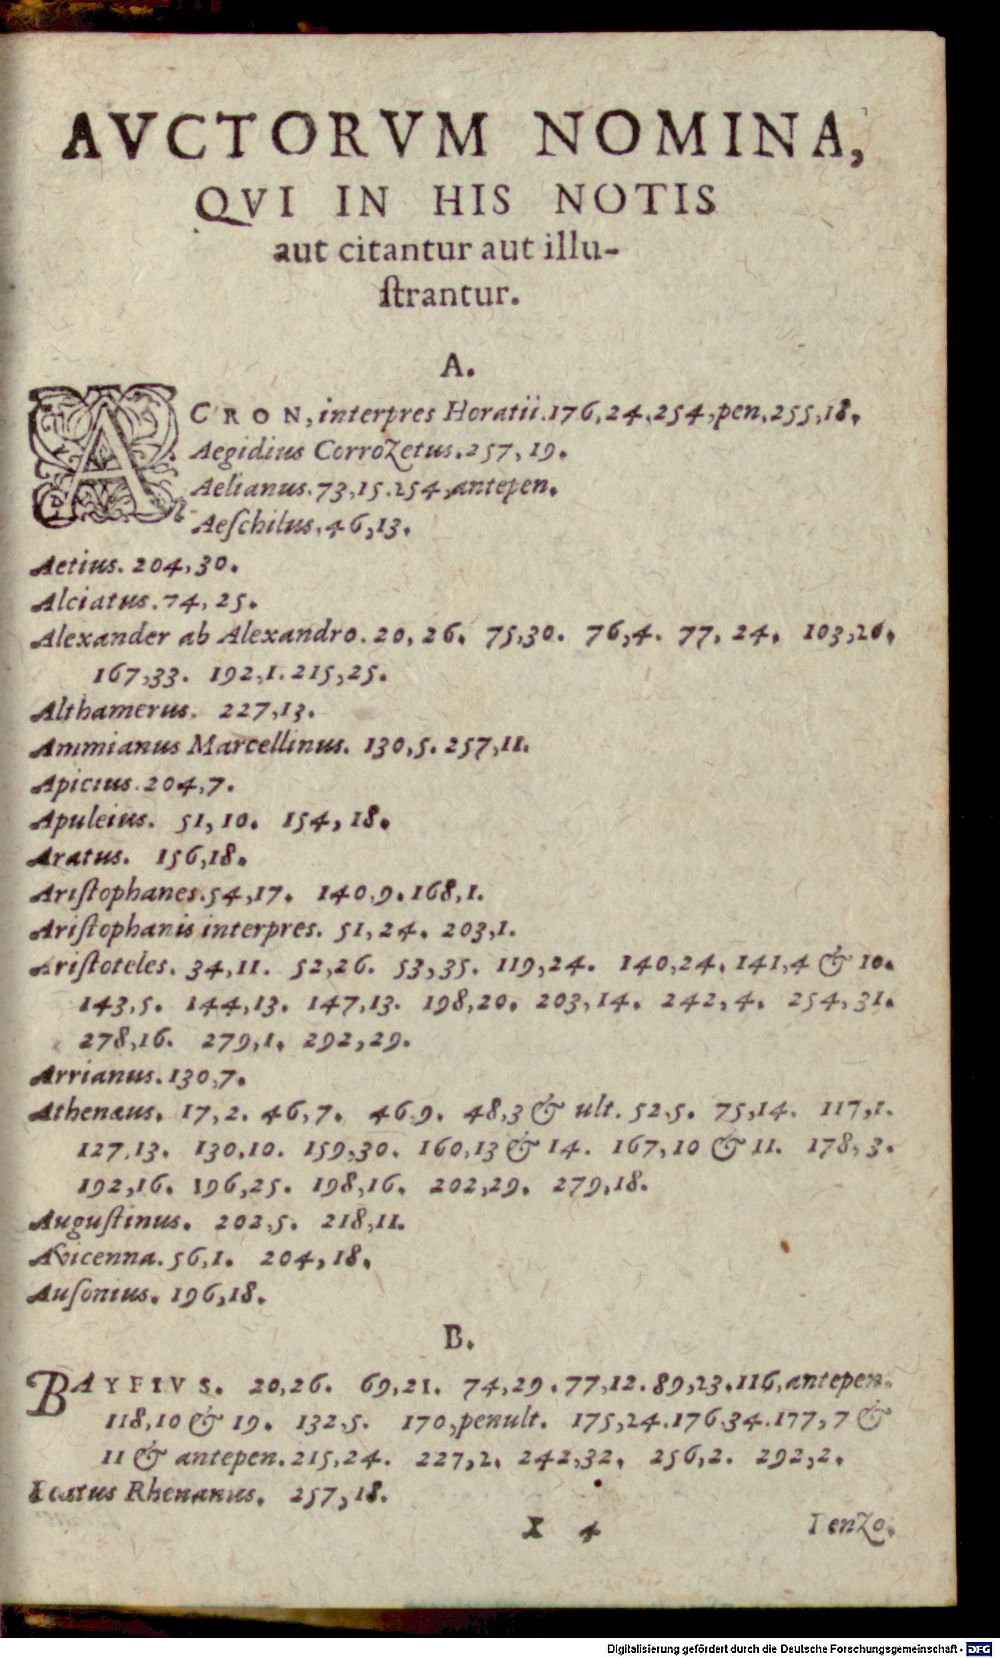 AVCTORVM NOMINA,
QVI IN HIS NOTIS
aut citantur aut illu-
ſtrantur.
A.
ACRON, interpres Horatii. 176, 24. 254, pen. 255, 18.
Aegidius Corrozetus. 257, 19.
Aelianus. 73, 15. 254, antepen.
Aeſchilus. 46, 13.
Aetius. 204, 30.
Alciatus. 74, 25.
Alexander ab Alexandro. 20, 26. 75, 30. 76, 4. 77, 24. 103, 26.
167, 33. 192, 1. 215, 25.
Althamerus. 227, 13.
Ammianus Marcellinus. 130, 5. 257, 11.
Apicius. 204, 7.
Apuleius. 51, 10. 154, 18.
Aratus. 156, 18.
Ariſtophanes. 54, 17. 140, 9. 168, 1.
Ariſtophanis interpres. 51, 24. 203, 1.
Ariſtoteles. 34, 11. 52, 26. 53, 35. 119, 24. 140, 24. 141, 4 & 10.
143, 5. 144, 13. 147, 13. 198, 20. 203, 14. 242, 4. 254, 31.
278, 16. 279, 1. 292, 29.
Arrianus. 130, 7.
Athenæus. 17, 2. 46, 7. 46. 9. 48, 3 & ult. 52, 5. 75, 14. 117, 1.
127, 13. 130, 10. 159, 30. 160, 13 & 14. 167, 10 & 11. 178, 3.
192, 16. 196, 25. 198, 16. 202, 29. 279, 18.
Auguſtinus. 202, 5. 218, 11.
Avicenna. 56, 1. 204, 18.
Auſonius. 196, 18.
B.
BAYFIVS. 20, 26. 69, 21. 74, 29. 77, 12. 89, 23. 116, antepen.
118, 10 & 19. 132, 5. 170, penult. 175, 24. 176. 34. 177, 7 &
11 & antepen. 215, 24. 227, 2. 242, 32. 256, 2. 292, 2.
Beatus Rhenanus. 257, 18.
X 4 Benzo,
Digitalisierung gefördert durch die Deutsche Forschungsgemeinschaft - DFG